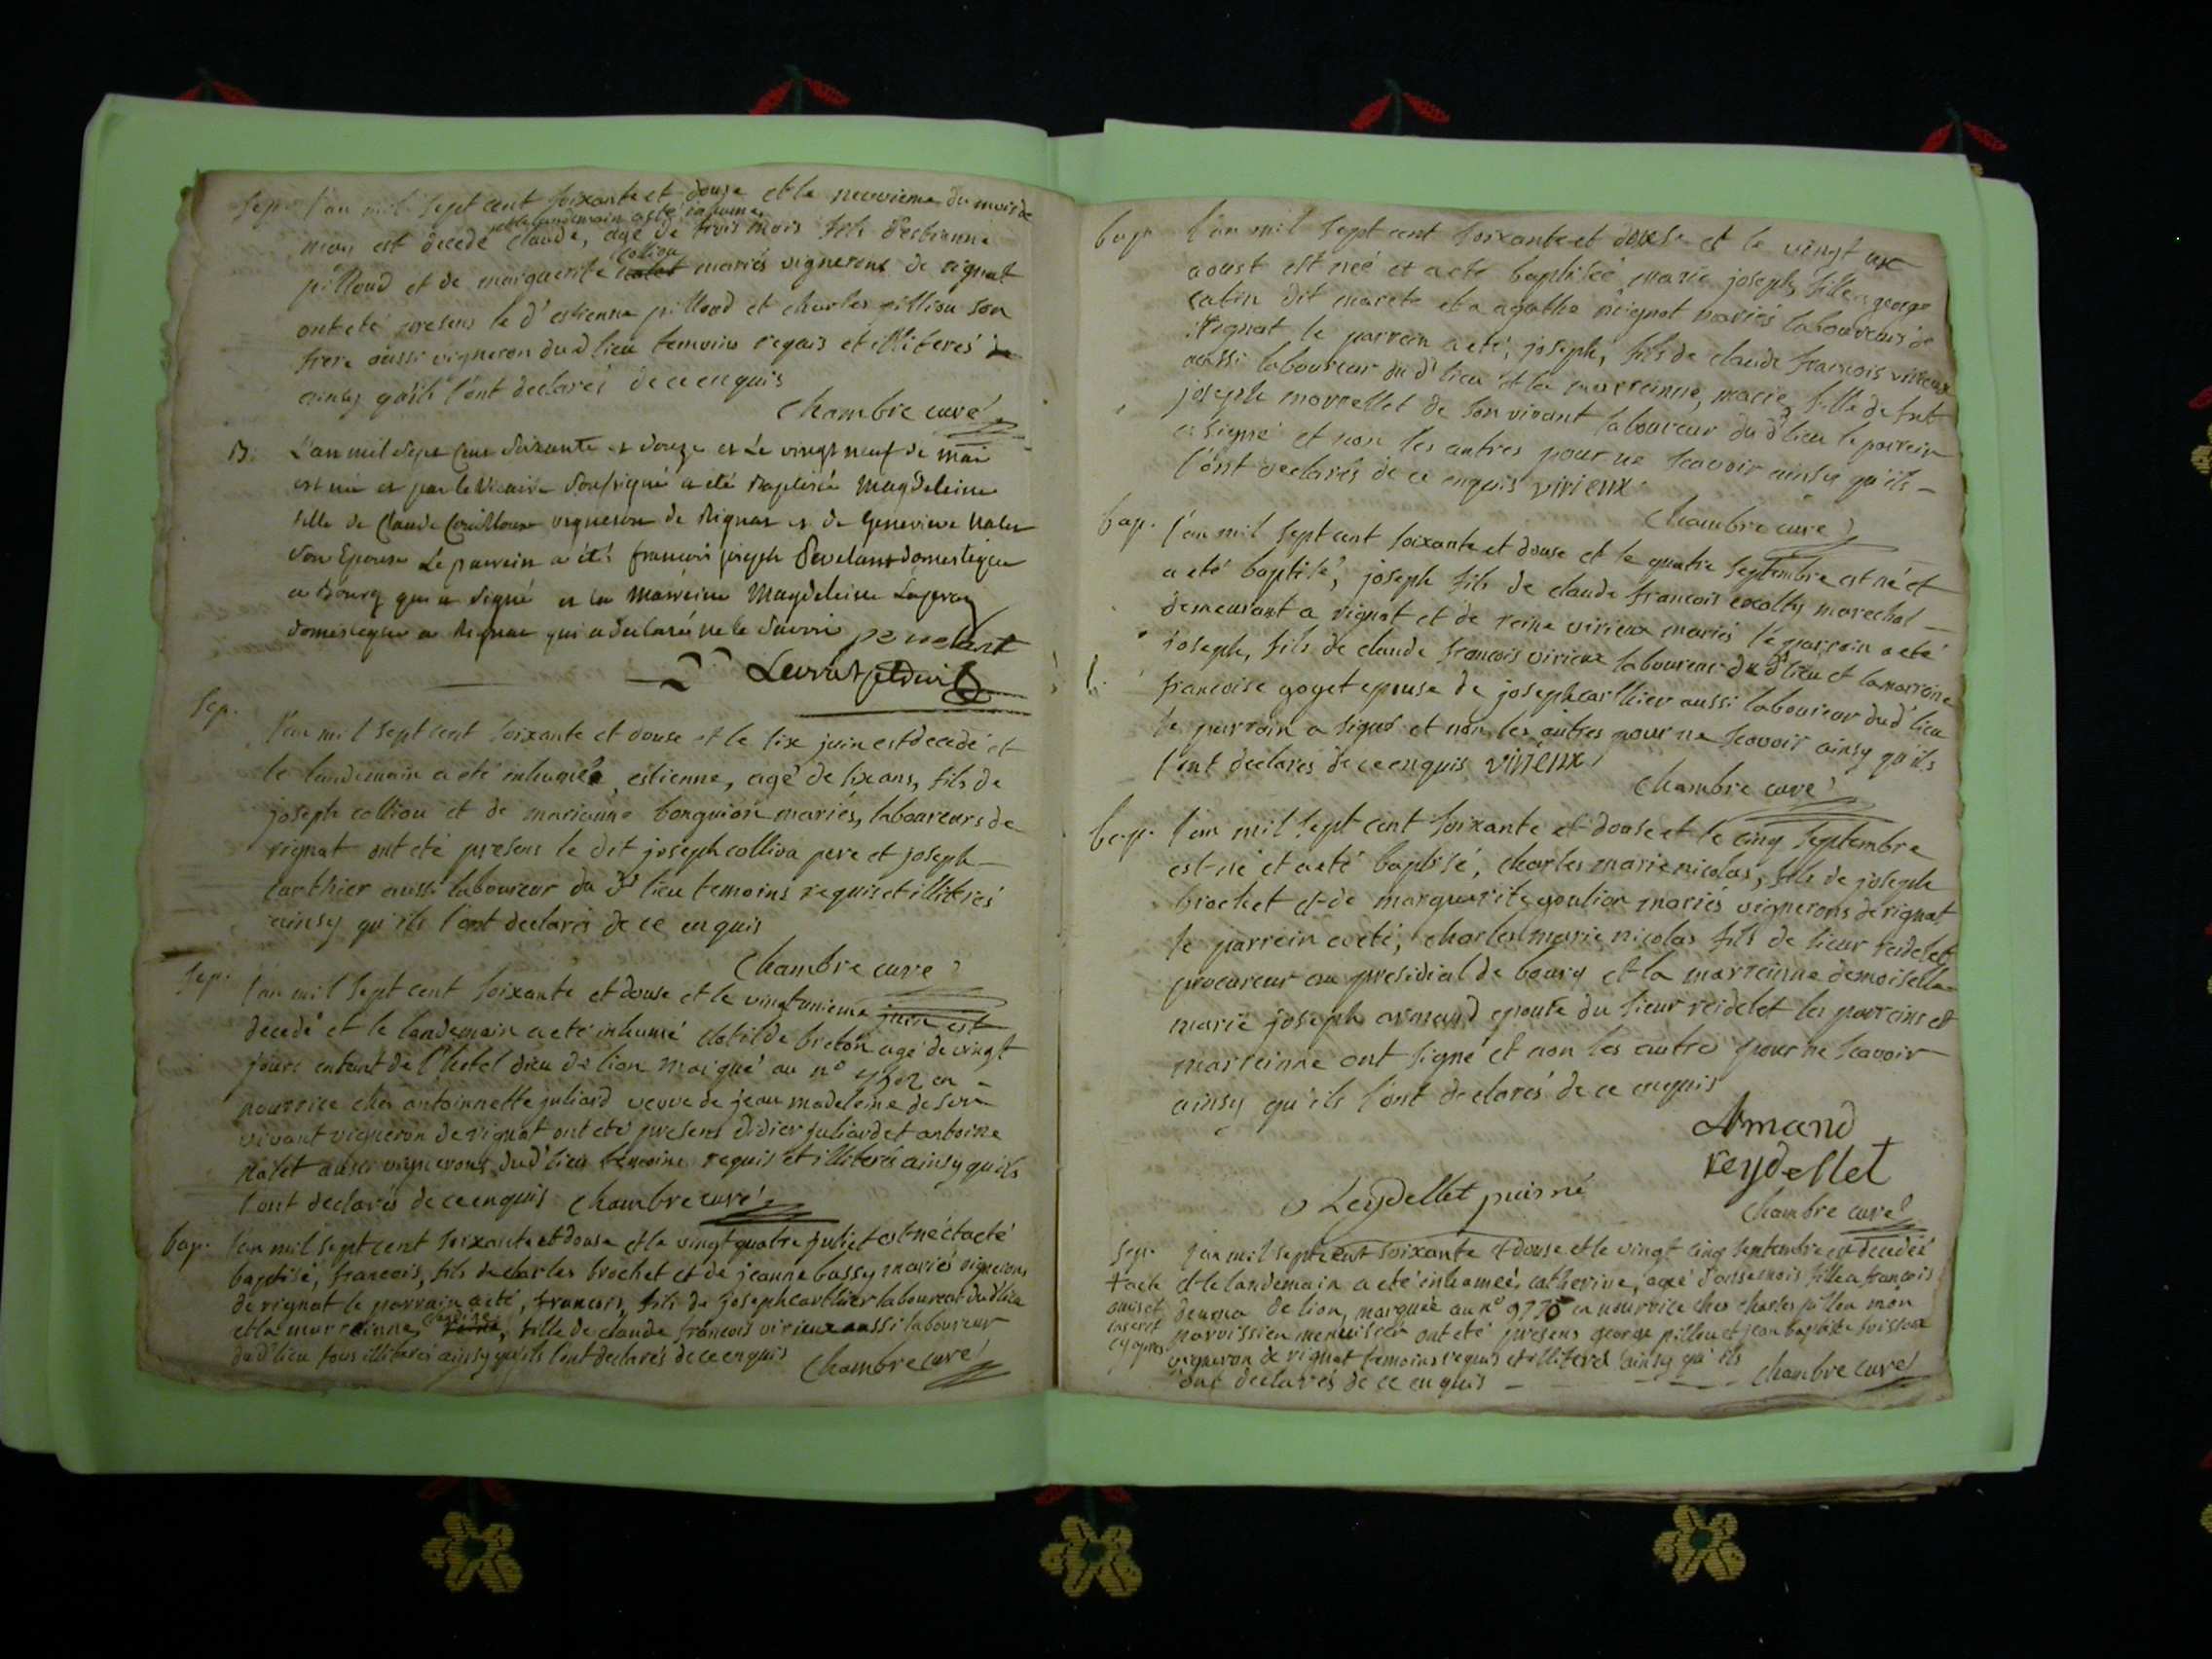 Sep. l'an mil sept cent soixante et douse et le neuvieme du mois de
et le landemain a eté inhumé
may est decedé claude, agé de trois mois fils d'estienne
colliou
pilloud et de marguerite nalet mariés vignerons de rignat
ont eté presens le d' estienne pilloud et charles pilliou son
frere aussi vigneron dud lieu temoins requis et illiterés
ainsy qu'ils l'ont declarés de ce enquis
chambre curé
B. L'an mil Sept Cent Soixante et douze et Le vingt neuf de mai
est née et par le Vicaire Soussigné a été Baptisée Magdeleine
fille de Claude vigneron de Rignat et de Genevieve Nalet
Son Epouse Le parrein a été françois joseph Pevelant domestique
a Bourg qui a signé et la Marreine Magdeleine
domestique a Rignat qui a declaré ne le Savoir pevelant
Sep. l'an mil sept cent soixante et douse et le six juin est decedé et
le landemain a eté inhumé, estienne, agé de six ans, fils de
joseph colliou et de marianne bonguion mariés, laboureurs de
rignat ont eté presens le dit joseph colliou pere et joseph
carthier aussi laboureur du d' lieu temoins requis et illiterés
ainsy qu'ils l'ont declarés de ce enquis
chambre curé
Sep. l'an mil sept cent soixante et douse et le vingt unieme juin est
decedé et le landemain a eté inhumé clotilde breton agé de vingt
jours enfant de l'hotel dieu de lion marqué au n° en
nourrice chés antoinnette juliard veuve de jean madeleine de son
vivant vigneron de rignat ont eté presens didier juliard et antoine
nalet aussi vignerons dud' lieu temoins requis et illiterés ainsy qu'ils
l'ont declarés de ce enquis chambre curé
bap. l'an mil sept cent soixante et douse et le vingt quatre juliet est né et a eté
baptisé, francois, fils de charles brochet et de jeanne bassy mariés vignerons
de rignat le parrain a eté, francois, fils de joseph carthier laboureur dud' lieu
et la marrainne, reine, fille de claude francois virieux aussi laboureur
dud' lieu tous illiterés ainsy qu'ils l'ont declarés de ce enquis chambre curé
bap. l'an mil sept cent soixante et douse et le vingt
aoust est neé et a eté baptiseé marie joseph, fille a george
catin dit marete et a agathe mariés laboureurs de
Rignat le parrein a eté, joseph, fils de claude francois virieux
aussi laboureur du d' lieu et la marreinne, marie, fille de fut
joseph morrellet de son vivant laboureur du d' lieu le parrein
a signé et non les autres pour ne scavoir ainsy qu'ils
l'ont declarés de ce enquis virieux
chambre curé
bap. l'an mil sept cent soixante et douse et le quatre septembre est né et
a eté baptisé, joseph fils de claude francois marechal
demeurant a rignat et de reine virieux mariés le parrein a eté
joseph, fils de claude francois virieux laboureur du d' lieu et la marreine
francoise goyet epouse de joseph carthier aussi laboureur dud' lieu
le parrain a signé et non les autres pour ne scavoir ainsy qu'ils
l'ont declarés de ce enquis virieux
chambre curé
bap. l'an mil sept cent soixante et douse et le cinq septembre
est né et a eté baptisé, charles marie nicolas, fils de joseph
brochet et de marguerite mariés vignerons de rignat
le parrein a eté, charles marie nicolas fils de sieur reidelet
procureur au presidial de bourg et la marreinne demoiselle
marie joseph armand epouse du sieur reidelet les parreins et
marreinne ont signé et non les autres pour ne scavoir
ainsy qu'ils l'ont declarés de ce enquis
Armand
reydellet
Reydellet puisné
chambre curé
Sep. l'an mil sept cent soixante et douse et le vingt cinq septembre est decedeé
l'acte et le landemain a eté inhumeé, catherine, ageé d'onse mois fille a francois
omis et de lion, marqueé au n° 9776 en nourrice chés charles mon
inseré parroissien menuisier ont eté presens george pilliou et jean baptiste
cy apres vigneron de rignat temoins requis et illiterés ainsy qu'ils
ont declarés de ce enquis chambre curé